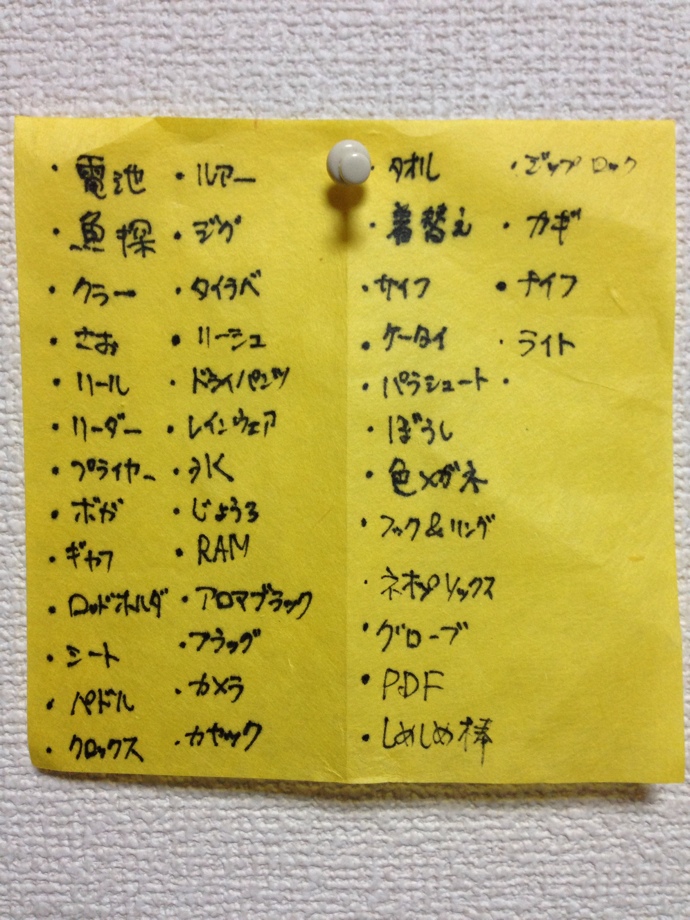 ・電池
・魚探
・クラー
・さお
・リール
・リーダー
・プライヤー
・ボガ
・ギャフ
・ロッドホルダ
・シート
・パドル
・クロックス
・ルアー
・ジグ
・タイラベ
・リーシュ
・ドライパンツ
・レインウェア
・氷
・じょうろ
・RAM
・アロマブラック
・フラッグ
・カメラ
・カヤック
・タオル
・着替え
・サイフ
・ケータイ
・パラシュート
・ぼうし
・色メガネ
・フック&リング
・グローブ
・PDF
・しめしめ棒
・ジップロック
・カギ
・ナイフ
・ライト
・